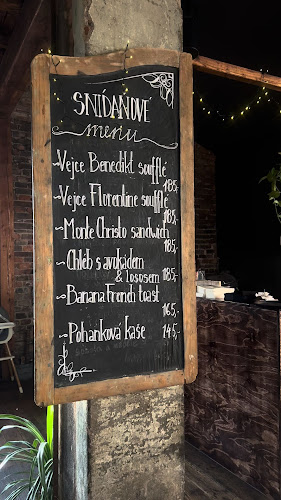 SNÍDAŇOVÉ
menu
~Vejce Benedikt soufflé
185,-
~Vejce Florentine soufflé
185,-
~Monte Christo sandwich
185,-
~Chléb s avokádem
& lososem 185,-
~Banana French toast
165,-
~Pohanková kaše 145,-